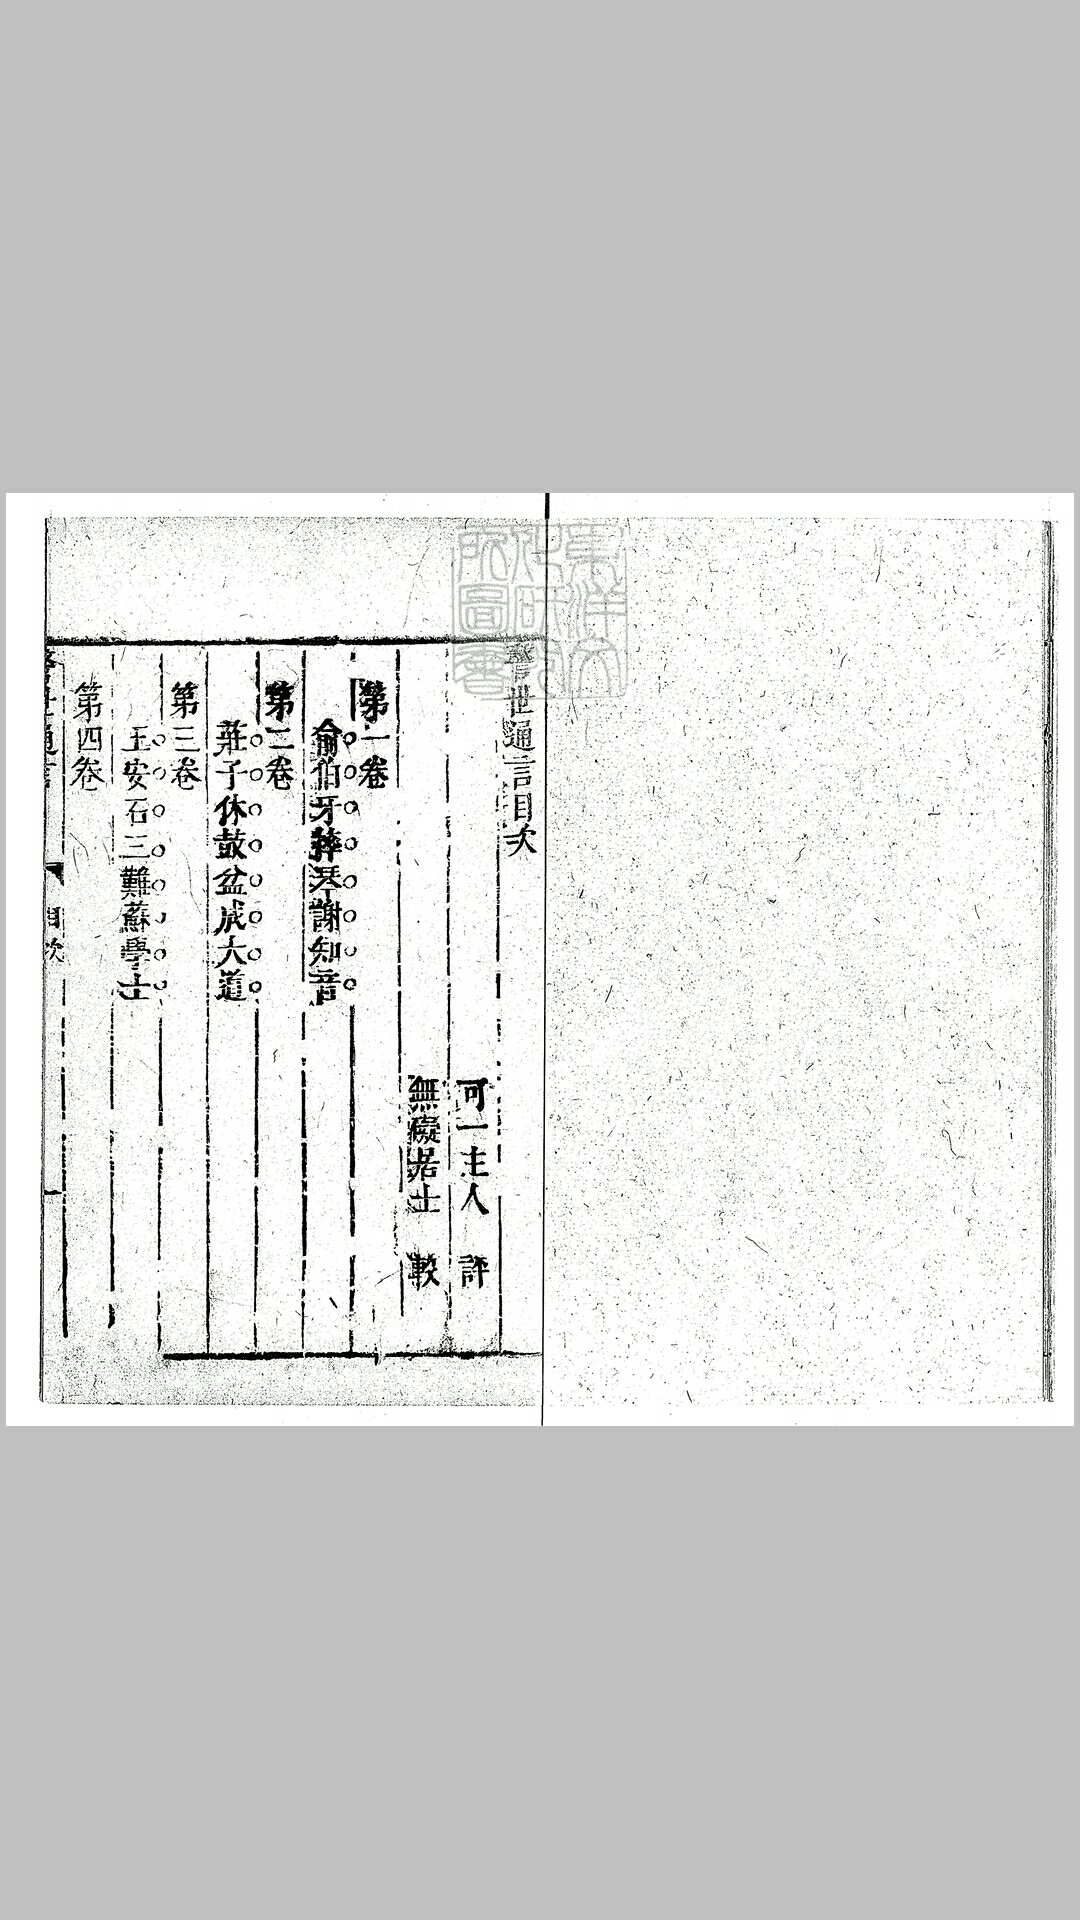 警世通言目次
可一主人 評
無礙居士 較
第一卷
俞伯牙摔琴謝知音
第二卷
莊子休鼓盆成大道
第三卷
王安石三難蘇學士
第四卷
警世通言 目次 一